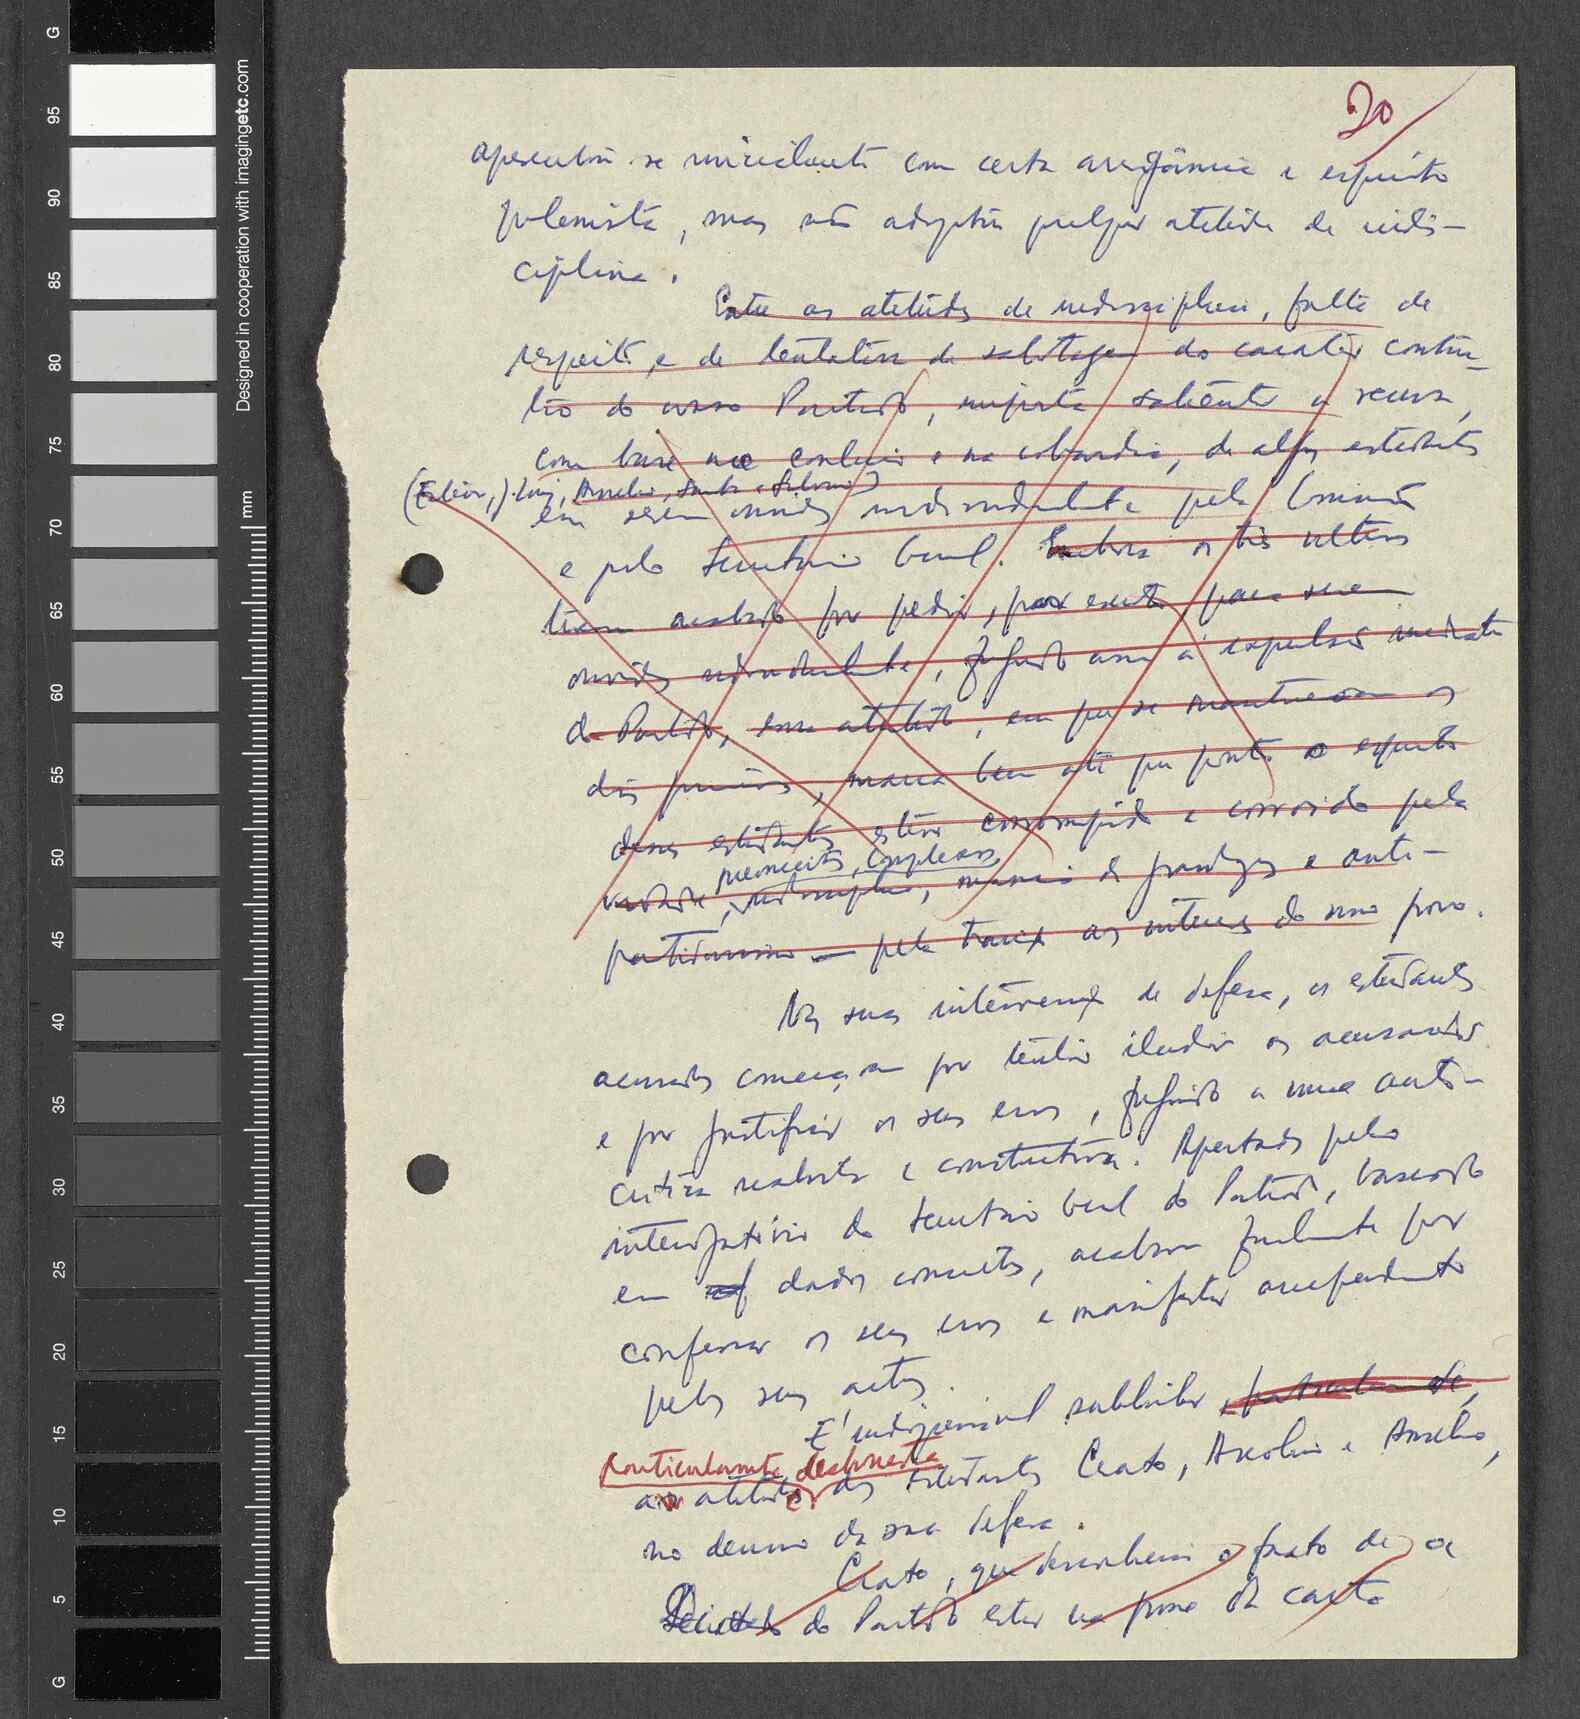 20
apresentou-se inicialmente com certa arrogância e espírito
polemista, mas não adoptou qualquer atitude de indis-
ciplina.
Entre as atitudes de indisciplina, falta de
respeito e de tentativa de sabotagem do caracter constru-
tivo do nosso Partido, importa salientar a recusa,
com base no conluio e na cobardia, de alguns estudantes
(Esteves,) Luiz, Anselmo,
em serem ouvidos individualmente pela Comissão
e pelo Secretário Geral. Embora os três últimos
tivessem acabado por pedir, por escrito, para serem
ouvidos individualmente, fugindo assim à expulsão imediata
do Partido, essa atitude, em que se mantiveram os
dois primeiros, marca bem até que ponto o espírito
desses estudantes estava corrompido e corroido pela
preconceitos, complexos
vaidade, indisciplina, mania de grandeza e anti-
partidarismo pela traição aos interesses do nosso povo.
Nas suas intervenções de defesa, os estudantes
acusados começaram por tentar iludir as acusações
e por justificar os seus erros, fugindo a uma auto-
crítica realista e construtiva. Apertados pelo
interrogatório do Secretário Geral do Partido, baseado
em dados concretos, acabaram finalmente por
confessar os seus erros e manifestar arrependimento
pelos seus actos.
É indispensável sublinhar, particularmente,
particularmente desonesta
a atitude dos estudantes Crato, e Anselmo,
no decurso da sua defesa.
Crato, que desconhecia o facto de a
do Partido estar na posse da carta